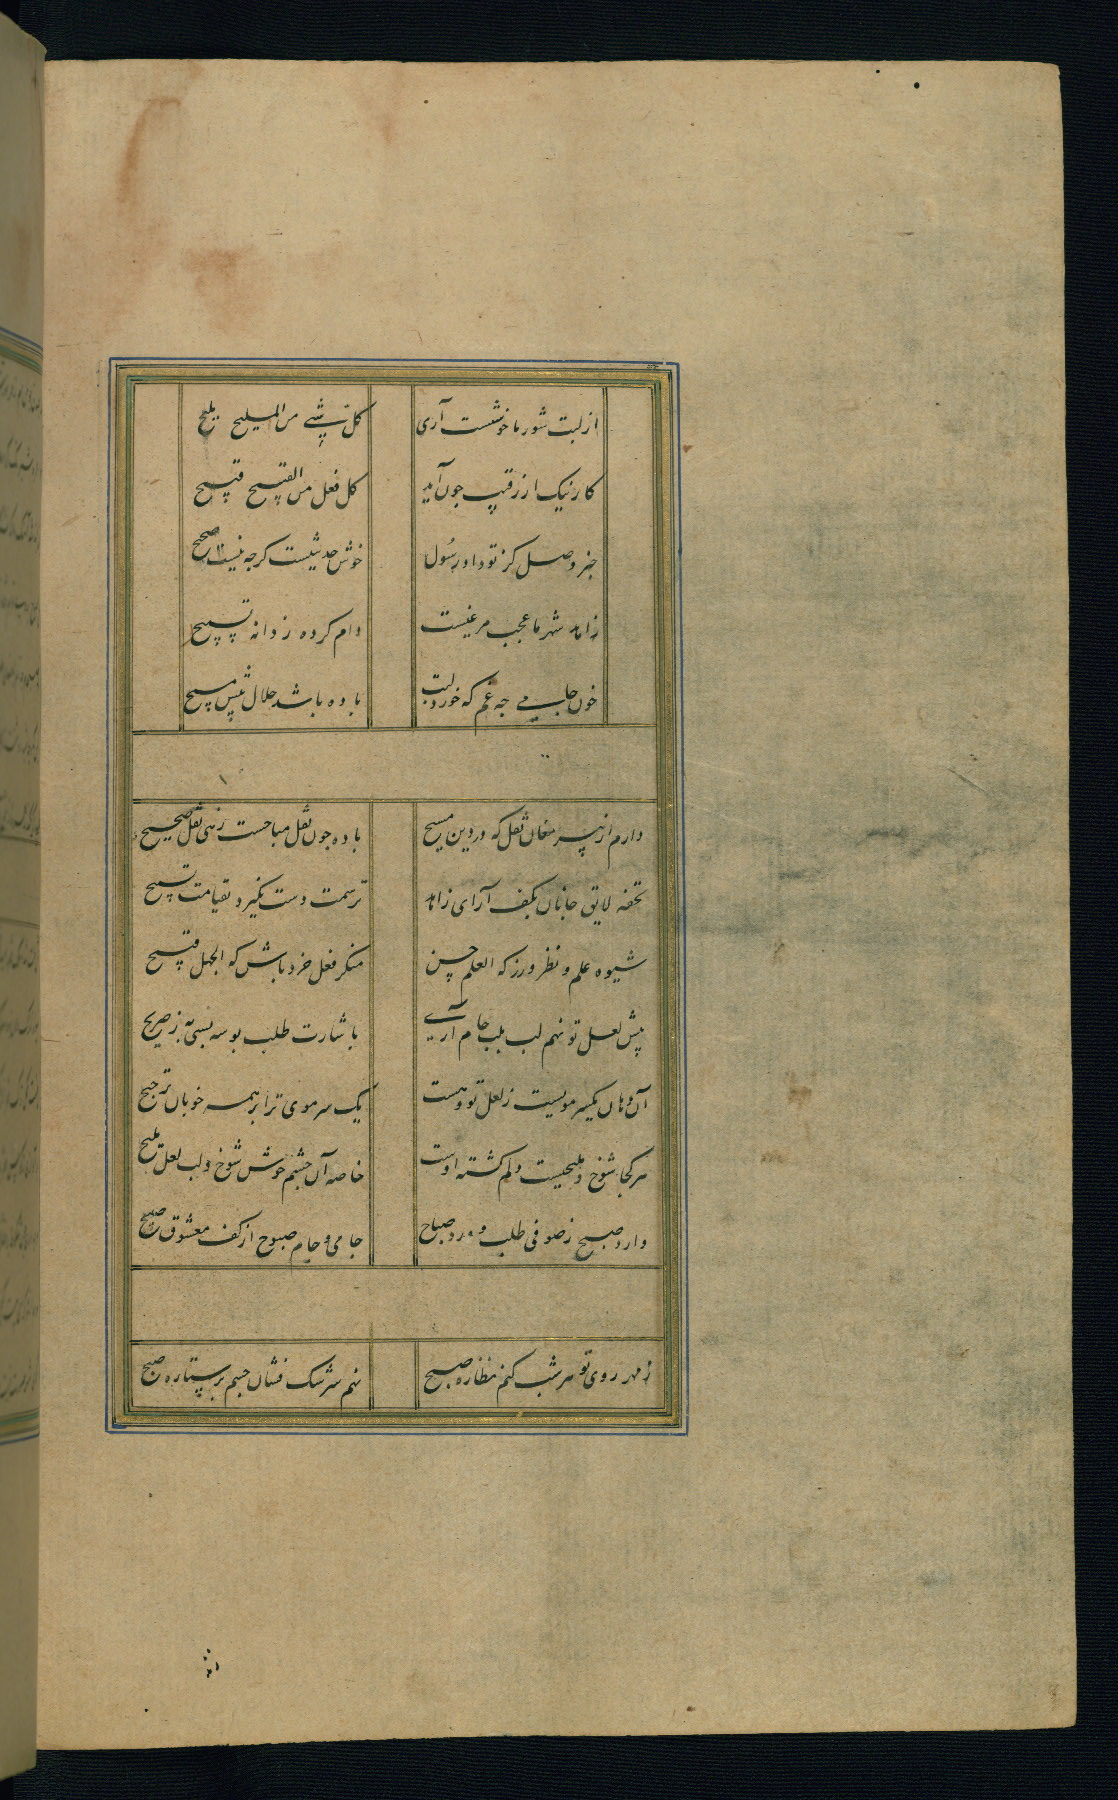 از لبت شور ما خوشست آری کل شیء من الملیح ملیح
کار نیک از رقیب چون آید کل فعل من القبیح قبیح
خبر وصل کز تو داد رسول خوش حدیثیست کرچه نیست صحیح
زاهد شهر ما عجب مرغیست دام کرده ز دانه تسبیح
خون جامی چه غم که خورد لبت باده باشد حلال پیش مسیح
دارم از پیر مغان نقل که در دین مسیح باده چون نقل مباحست زهی نقل صحیح
تحفه لایق جانان بکف آر ای زاهد ترسمت دست نکیرد بقیامت تسبیح
شیوه علم و نظر ورز که العلم حسن منکر فعل خرد باش که الجهل قبیح
پیش لعل تو نهم لب بلب جام آری باشارت طلب بوسه بسی به ز صریح
آن دهان یکسر مویست ز لعل تو و هست یک سر موی ترا بر همه خوبان ترجیح
هر کجا شوخ و ملیحیست دلم کشته اوست خاصه آن چشم خوش شوخ و لب لعل ملیح
دارد صبیح ز صوفی طلب ورد صباح جامی و جام صبوح از کف معشوق صبیح
ز مهر روی تو هر شب کنم نظاره صبح نهم سرشک فشان چشم بر ستاره صبح